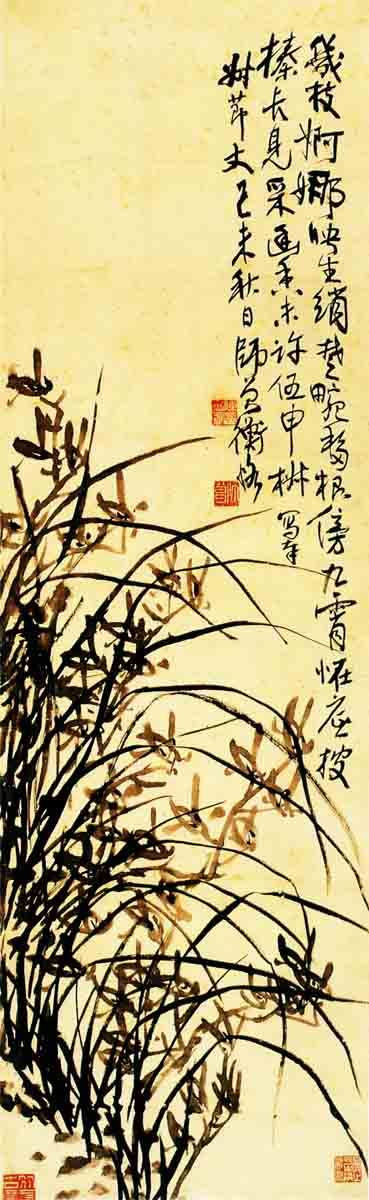 幾枝婀娜映生綃楚畹移根傍九霄恠底披
榛長見采香未許伍申椒 寫奉
叔節丈 己未秋日師曾衡恪